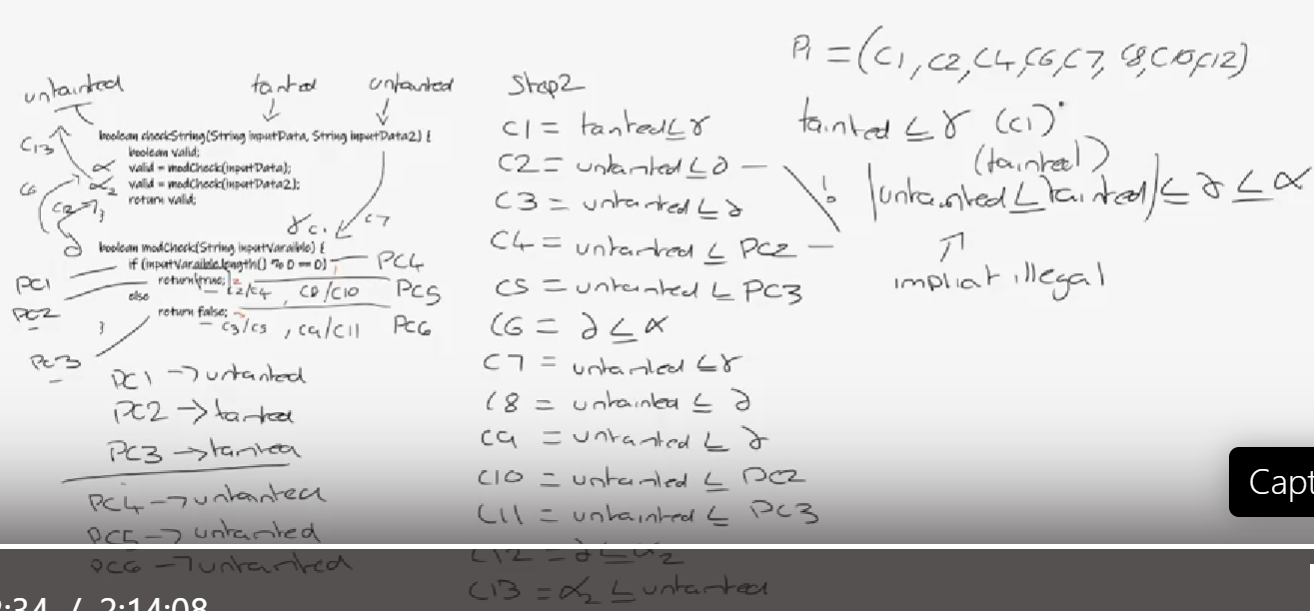 P1 = (C1, C2, C4, C6, C7, C8, C10, C12)
untainted
tainted
untainted
C13
boolean checkString(String inputData, String inputData2) {
boolean valid;
α valid = modCheck(inputData);
α2 valid = modCheck(inputData2);
return valid;
}
C6
∂
γ C1
C7
boolean modCheck(String inputVaraible) {
if (inputVaraible.length() % 0 == 0)
return(true;)
else
return false;
}
PC1
PC2
PC3
PC4
C2/C4, C8/C10 PC5
C3/C5, C9/C11 PC6
PC1 → untainted
PC2 → tainted
PC3 → tainted
PC4 → untainted
PC5 → untainted
PC6 → untainted
Step2
C1 = tainted ≤ γ
C2 = untainted ≤ ∂
C3 = untainted ≤ ∂
C4 = untainted ≤ PC2
C5 = untainted ≤ PC3
C6 = ∂ ≤ α
C7 = untainted ≤ γ
C8 = untainted ≤ ∂
C9 = untainted ≤ ∂
C10 = untainted ≤ PC2
C11 = untainted ≤ PC3
C12 = ∂ ≤ α2
C13 = α2 ≤ untainted
tainted ≤ γ (C1)
(tainted)
untainted ≤ tainted ≤ ∂ ≤ α
implicit illegal
Capt
:34 / 2:14:08